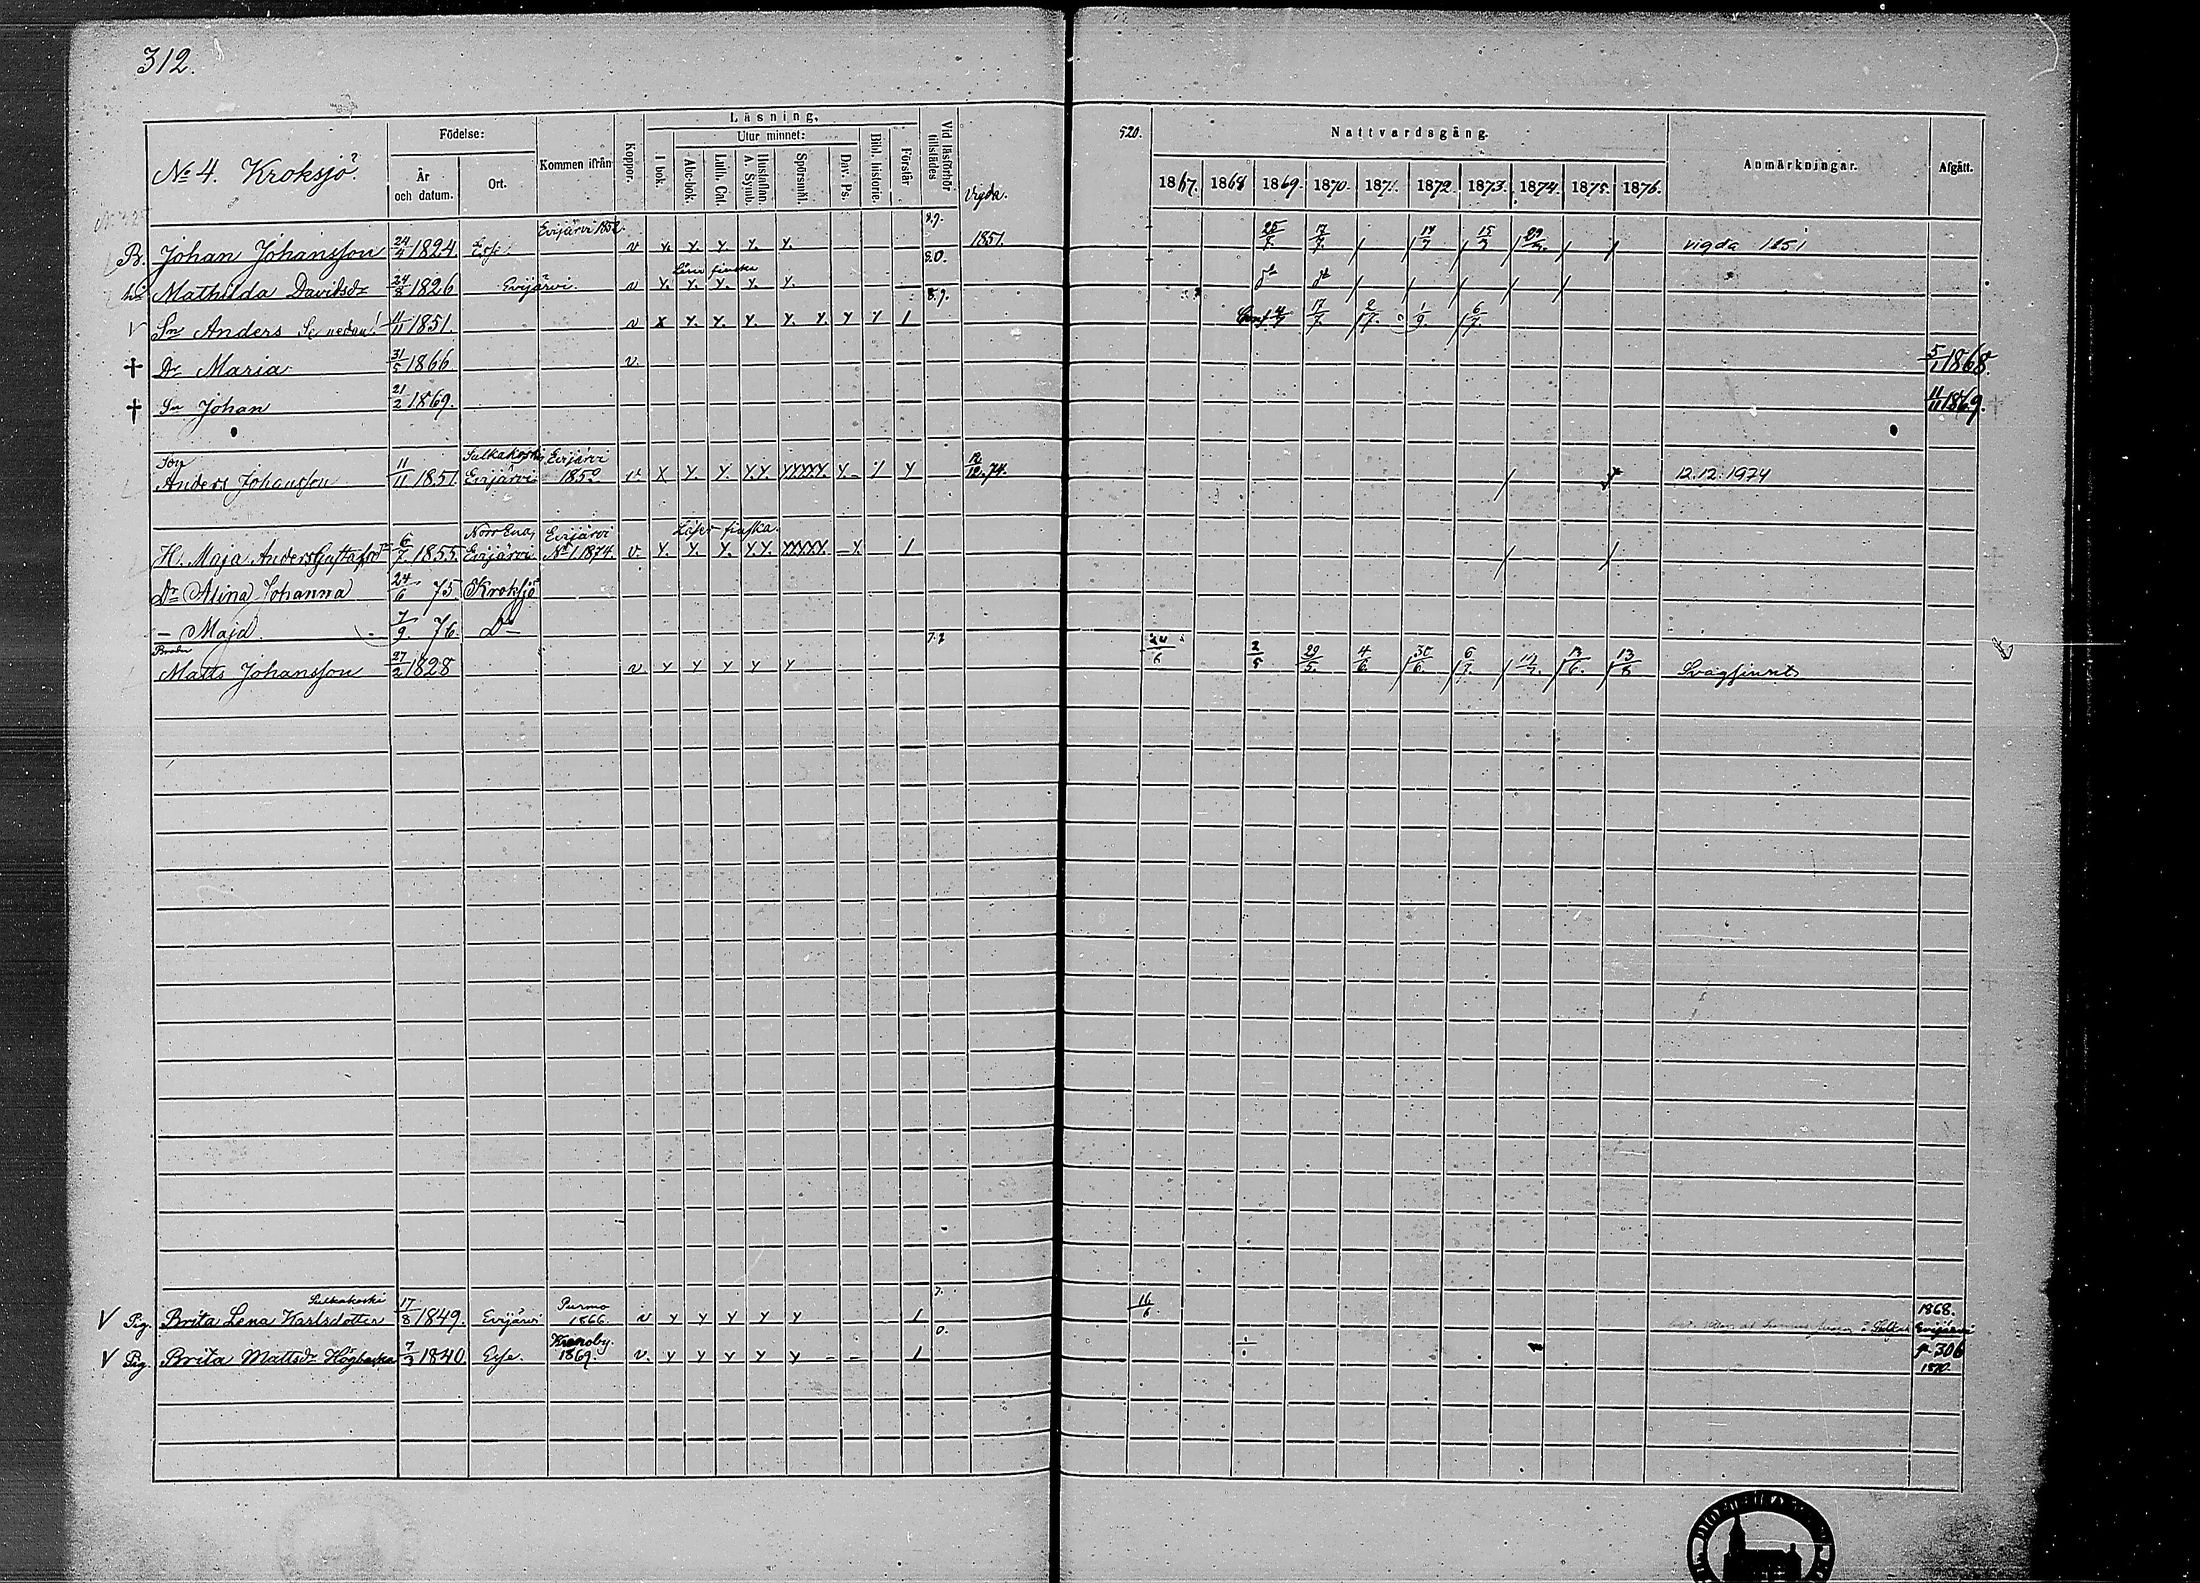 312.
Läsning.
Födelse:
Utur minnet:
520.
Nattvardsgång.
№ 4. Kroksjö
År och datum.
Ort.
Kommen ifrån
Koppor.
I bok.
Abc-bok.
Luth. Cat.
Hustaflan. A. Symb.
Spörsmål.
Dav. Ps.
Bibl. historie.
Förstår
Vid läsförhör tillstädes
Vigda.
1867. 1868 1869. 1870. 1871. 1872. 1873. 1874. 1875. 1876.
Anmärkningar.
Afgått.
Evijärvi 1852. 8.9.
B. Johan Johansson 24/4 1824 Esse. v y. y. y. y. y. 1851. 25/7 17/7 / 14/7 15/7 29/ / / vigda 1851
Läser finska 8.0.
h. Mathilda Davidsdr 24/8 1826 Evijärvi. v y. y. y. y. y. / / / / /
8.9.
V Sn Anders Se nedan! 11/11 1851. v x y. y. y. y. y. y y 1 17/7. 2/7. 1/9. 6/7.
† Dr Maria 31/5 1866 v. 5/1 1868.
† Sn Johan 21/2 1869. 11/11 1869.
Son Sulkakoski Evijärvi
Anders Johansson 11/11 1851. Evijärvi 1852 v. x y. y. y.y. yyyyy y. - / y 12/12 74. / 12.12.1974
Evijärvi Läser finska.
H. Maja Anders Gustafsdr 6/7 1855. Evijärvi № 1 1874. v. y. y. y. y.y. yyyyy - y. 1 / /
Dr Alina Johanna 24/6 75 Kroksjö
- Maja. 7/9. 76 Do
Broder
Matts Johansson 27/2 1828 v y y y y y 24/6 2/5 29/5. 4/6. 30/6. 6/7. 13/6. 13/6 Svagsint
Sulkakoski Purmo 1868.
V Pig. Brita Lena Karlsdotter 17/8 1849. Evijärvi 1866. v y y y y y 1 16/6. Evijärvi
Kronoby.
V Pig. Brita Mattsdr Högbacka 7/3 1840. Esse. 1869. v. y y y y y - - 1 p 306
1870.